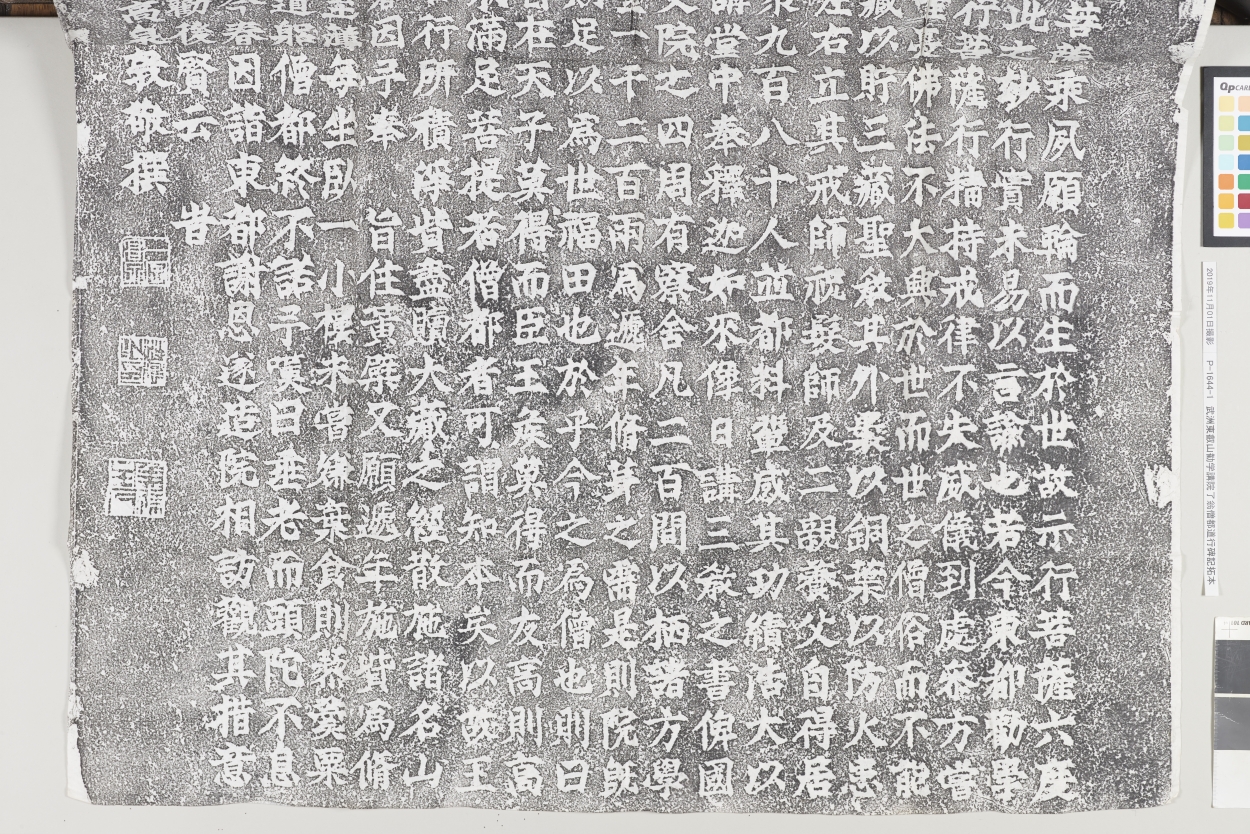 菩薩乘夙願輪而生於世故示行菩薩六度
此之妙行實未易以言論也若今東都勸學
行菩薩行擔持戒律不失威儀到處容方嘗
佛法不大興於世而世之僧俗而不能
藏以貯三藏聖教其外裹以銅葉以防火患
左右立其戒師祝髮師及二親養父自得居
眾九百八十人並都料輩感其功績浩大以
講堂中奉釋迦如來俾日講三教之書俾國
院之四周有寮舍凡二百間以栖諸方學
一千二百兩為遞年脩葺之需是則院既
則足以為世福田也於乎今之為僧也則曰
在天子莫得而臣王矦莫得而友高則高
滿足菩提若僧都者可謂知本矣以故王
行所積藏貲盡贖大藏之經散施諸名山
因子奉
旨住黃檗又願遞年施貲為脩
每坐臥一小樓未嘗嫌棄食則黎羹粟
道聖僧都終不諾予嘆曰垂老而頭陀不息
春因諸東都謝恩遂造院相訪觀其指意
勸後賢云
旹
敦敬撰
2019年11月01日撮影 P-1644-1 武州東叡山勧学講院了翁僧都道行碑記拓本